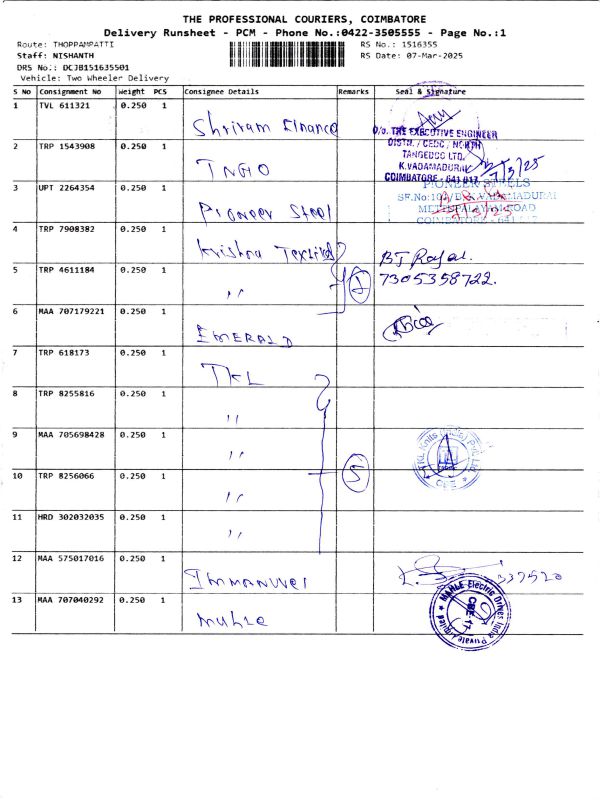 THE PROFESSIONAL COURIERS, COIMBATORE
Delivery Runsheet - PCM - Phone No.:0422-3505555 - Page No.:1
Route: THOPPAMPATTI RS No.: 1516355
Staff: NISHANTH RS Date: 07-Mar-2025
DRS No.: DCJB151635501
Vehicle: Two Wheeler Delivery
S No Consignment No Weight PCS Consignee Details Remarks Seal & Signature
1 TVL 611321 0.250 1 Shriram Finance
O/o. THE EXECUTIVE ENGINEER
DISTN. / CEDC / NORTH
TANGEDCO LTD.
K.VADAMADURAI
COIMBATORE - 641 017
2 TRP 1543908 0.250 1 TNGO 7/3/25
3 UPT 2264354 0.250 1 Pioneer Steel
PIONEER STEELS
METTUPALAYAM ROAD
COIMBATORE - 641 017
4 TRP 7908382 0.250 1 Krishna Textiles BJ Rajal.
5 TRP 4611184 0.250 1 " 7305358722.
6 MAA 707179221 0.250 1 EMERALD
7 TRP 618173 0.250 1 TKL
8 TRP 8255816 0.250 1 "
9 MAA 705698428 0.250 1 "
TKL Knits (India) Pvt. Ltd.
10 TRP 8256066 0.250 1 " 5
11 HRD 302032035 0.250 1 "
12 MAA 575017016 0.250 1 Immanuvel
13 MAA 707040292 0.250 1 Mahle
MAHLE Electric Drives India Private Limited
CBE-17